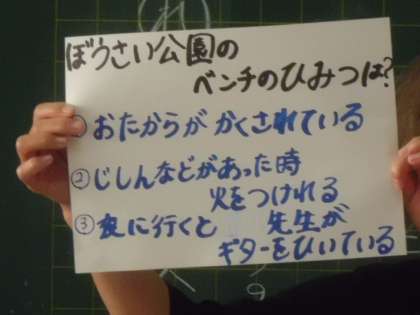 ぼうさい公園の
ベンチのひみつは?
①おたからが かくされている
②じしんなどがあった時
火をつけれる
③夜に行くと 先生が
ギターをひいている